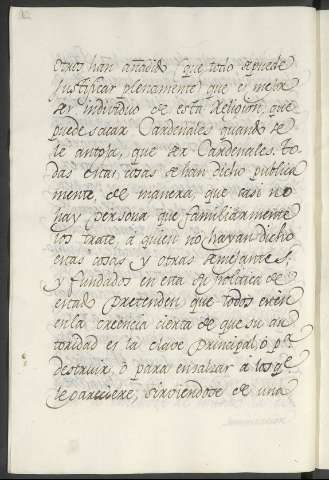 Otros han añadido (que todo se puede
justificar plenamente) que es mejor
ser individuo de esta Religion, que
puede sacar Cardenales quando se
le antoja, que ser Cardenales. To
das estas cosas se han dicho publica
mente, de manera, que casi no
hay persona que familiarmente
los trate, a quien no hayan dicho
estas cosas y otras semejantes,
y fundados en esta su politica de
estado pretenden que todos esten
en la creencia cierta de que su au
toridad es la clave principal, ò pᵃ
destruir, ò para ensalzar à los qᵉ
le pareciere, sirviendose de una